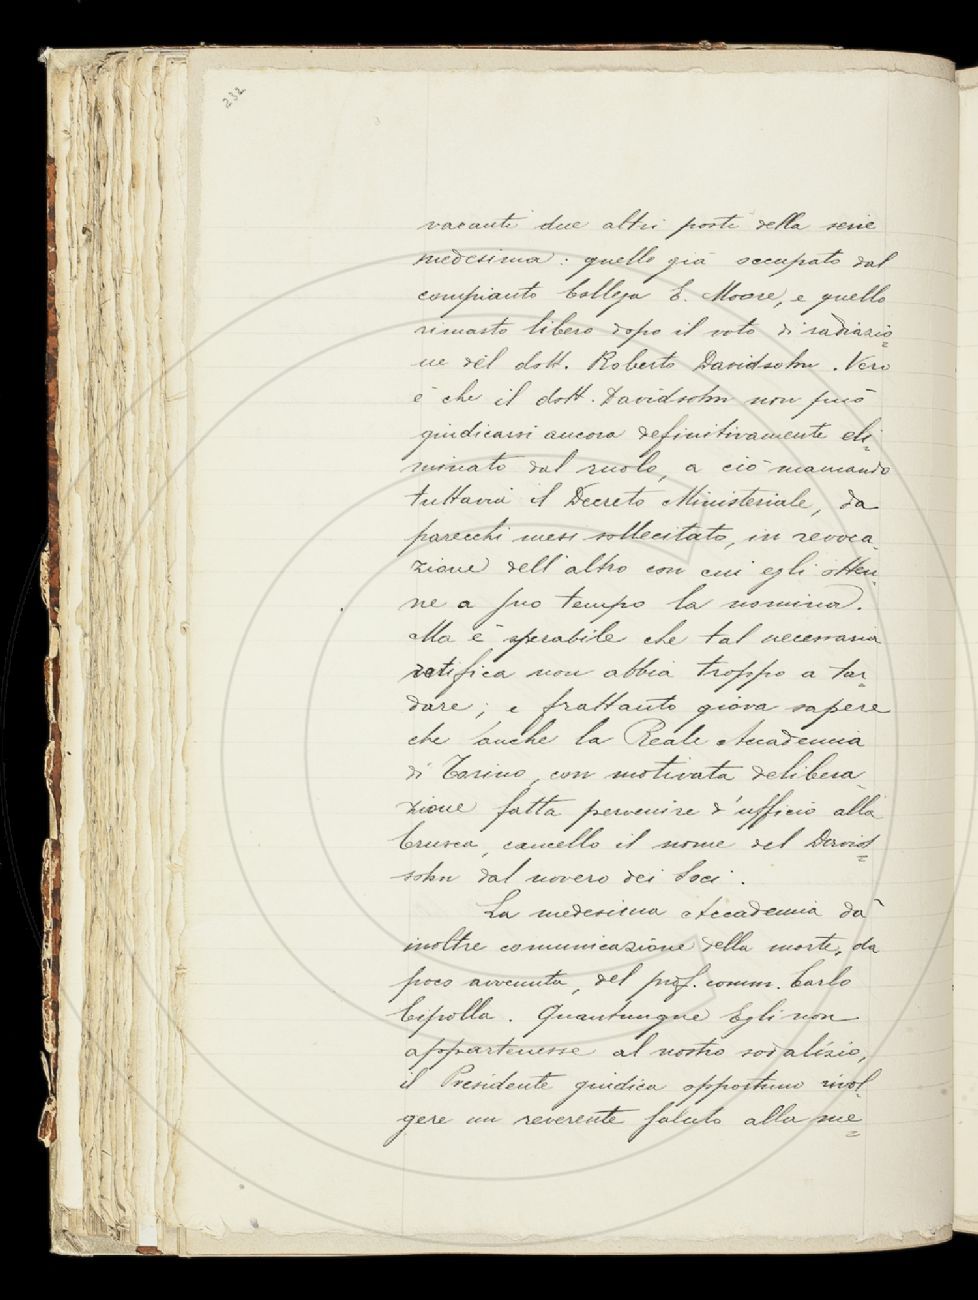 232
vacanti due altri posti della serie
medesima: quello già occupato dal
compianto Collega E. Moore, e quello
rimasto libero dopo il voto di radiazio=
ne del dott. Roberto Davidsohn. Vero
è che il dott. Davidsohn non può
giudicarsi ancora definitivamente eli=
minato dal ruolo, a ciò mancando
tuttavia il Decreto Ministeriale, da
parecchi mesi sollecitato, in revoca-
zione dell'altro con cui egli otten-
ne a suo tempo la nomina.
Ma è sperabile che tal necessaria
ratifica non abbia troppo a tar-
dare; e frattanto giova sapere
che anche la Reale Accademia
di Torino, con motivata delibera-
zione fatta pervenire d'ufficio alla
Crusca, cancellò il nome del David=
sohn dal novero dei Soci.
La medesima Accademia dà
inoltre comunicazione della morte, da
poco avvenuta, del prof. comm. Carlo
Cipolla. Quantunque Egli non
appartenesse al nostro sodalizio,
il Presidente giudica opportuno rivol-
gere un reverente saluto alla me=